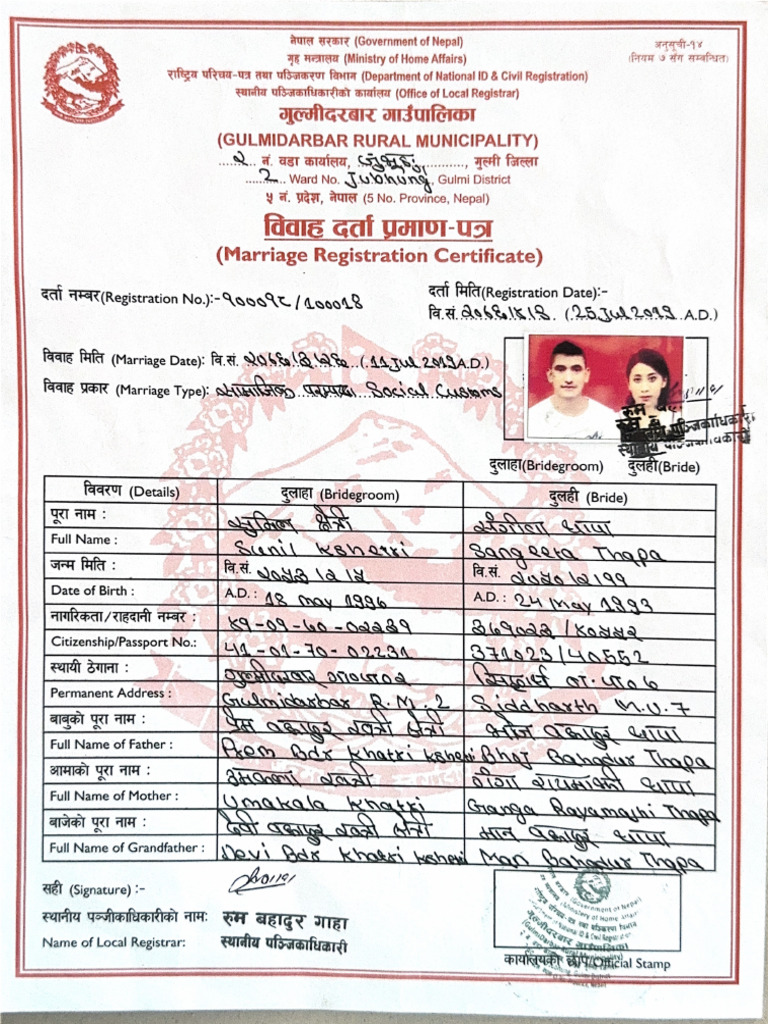 नेपाल सरकार (Government of Nepal)
गृह मन्त्रालय (Ministry of Home Affairs)
राष्ट्रिय परिचय-पत्र तथा पञ्जिकरण विभाग (Department of National ID & Civil Registration)
स्थानीय पञ्जिकाधिकारीको कार्यालय (Office of Local Registrar)
अनुसूची-१४
(नियम ७ सँग सम्बन्धित)
गुल्मीदरबार गाउँपालिका
(GULMIDARBAR RURAL MUNICIPALITY)
२ नं. वडा कार्यालय, जुभुङ, गुल्मी जिल्ला
2 Ward No. Jubhung, Gulmi District
५ नं. प्रदेश, नेपाल (5 No. Province, Nepal)
विवाह दर्ता प्रमाण-पत्र
(Marriage Registration Certificate)
दर्ता नम्बर(Registration No.):-१०००१८/100018
दर्ता मिति(Registration Date):-
वि.सं. (25 Jul 2019 A.D.)
विवाह मिति (Marriage Date): वि.सं. २०७६।३।२६ (11 Jul 2019 A.D.)
विवाह प्रकार (Marriage Type): सामाजिक परम्परा Social Customs
दुलाहा(Bridegroom) दुलही(Bride)
विवरण (Details) दुलाहा (Bridegroom) दुलही (Bride)
पूरा नाम : सुनिल क्षेत्री संगीता थापा
Full Name : Sunil Kshetri Sangeeta Thapa
जन्म मिति : वि.सं. २०५३।२।५ वि.सं. २०५०।२।११
Date of Birth : A.D.: 18 may 1996 A.D.: 24 May 1993
नागरिकता/राहदानी नम्बर : ४१-०१-७०-०२२३१ ३७१०२३/४०५५२
Citizenship/Passport No.: 41-01-70-02231 371023/40552
स्थायी ठेगाना : गुल्मीदरबार गा.पा.२ सिद्धार्थ न.पा.७
Permanent Address : Gulmidarbar R.M.2 Siddharth M.U.7
बाबुको पूरा नाम : प्रेम बहादुर खत्री क्षेत्री भोज बहादुर थापा
Full Name of Father : Prem Bdr Khatri Kshetri Bhoj Bahadur Thapa
आमाको पूरा नाम : उमकला खत्री गंगा रायमाझी थापा
Full Name of Mother : Umakala Khatri Ganga Rayamajhi Thapa
बाजेको पूरा नाम : देवी बहादुर खत्री क्षेत्री मान बहादुर थापा
Full Name of Grandfather : Devi Bdr Khatri Kshetri Man Bahadur Thapa
सही (Signature) :-
स्थानीय पञ्जीकाधिकारीको नामः रुम बहादुर गाहा
Name of Local Registrar: स्थानीय पञ्जिकाधिकारी
कार्यालयको छाप/Official Stamp